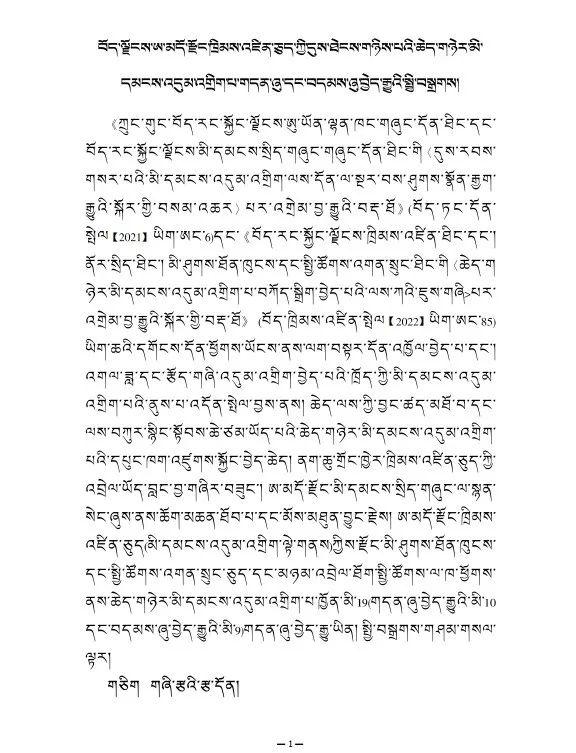 བོད་ལྗོངས་ཨ་མདོ་རྫོང་ཁྲིམས་འཛིན་ཅུད་ཀྱི་དུས་ཐེངས་གཉིས་པའི་ཆེད་གཉེར་མི་
དམངས་འདུམ་འགྲིག་པ་གདན་ཞུ་དང་བདམས་ཞུ་བྱེད་རྒྱུའི་སྤྱི་བསྒྲགས།
《ཀྲུང་གུང་བོད་རང་སྐྱོང་ལྗོངས་ཨུ་ཡོན་ལྷན་ཁང་གཞུང་དོན་ཐིང་དང་
བོད་རང་སྐྱོང་ལྗོངས་མི་དམངས་སྲིད་གཞུང་གཞུང་དོན་ཐིང་གི〈དུས་རབས་
གསར་པའི་མི་དམངས་འདུམ་འགྲིག་ལས་དོན་ལ་སྔར་བས་ཤུགས་སྣོན་རྒྱག་
རྒྱུའི་སྐོར་གྱི་བསམ་འཆར〉པར་འགྲེམ་བྱ་རྒྱུའི་བརྡ་ཐོ》(བོད་ཏང་དོན་
སྤེལ【2021】ཡིག་ཨང་6)དང་《བོད་རང་སྐྱོང་ལྗོངས་ཁྲིམས་འཛིན་ཐིང་དང་།
ནོར་སྲིད་ཐིང་། མི་ཤུགས་ཐོན་ཁུངས་དང་སྤྱི་ཚོགས་འགན་སྲུང་ཐིང་གི〈ཆེད་ག
ཉེར་མི་དམངས་འདུམ་འགྲིག་པ་བཀོད་སྒྲིག་བྱེད་པའི་ལས་ཀའི་ཇུས་གཞི>པར་
འགྲེམ་བྱ་རྒྱུའི་སྐོར་གྱི་བརྡ་ཐོ》(བོད་ཁྲིམས་འཛིན་སྤེལ【2022】ཡིག་ཨང་85)
ཡིག་ཆའི་དགོངས་དོན་ཕྱོགས་ཡོངས་ནས་ལག་བསྟར་དོན་འཁྱོལ་བྱེད་པ་དང་།
འགལ་ཟླ་དང་རྩོད་གཞི་འདུམ་འགྲིག་བྱེད་པའི་ཁྲོད་ཀྱི་མི་དམངས་འདུམ་
འགྲིག་པའི་ནུས་པ་འདོན་སྤེལ་བྱས་ནས། ཆེད་ལས་ཀྱི་བྱང་ཚད་མཐོ་བ་དང་
ལས་བཀུར་སྙིང་སྟོབས་ཆེ་ཙམ་ཡོད་པའི་ཆེད་གཉེར་མི་དམངས་འདུམ་འགྲིག་
པའི་དཔུང་ཁག་འཛུགས་སྐྱོང་བྱེད་ཆེད། ནག་ཆུ་གྲོང་ཁྱེར་ཁྲིམས་འཛིན་ཅུད་ཀྱི་
འབྲེལ་ཡོད་བླང་བྱ་གཞིར་བཟུང་། ཨ་མདོ་རྫོང་མི་དམངས་སྲིད་གཞུང་ལ་སྙན་
སེང་ཞུས་ནས་ཆོག་མཆན་ཐོབ་པ་དང་མོས་མཐུན་བྱུང་རྗེས། ཨ་མདོ་རྫོང་ཁྲིམས་
འཛིན་ཅུད(མི་དམངས་འདུམ་འགྲིག་ལྟེ་གནས)ཀྱིས་རྫོང་མི་ཤུགས་ཐོན་ཁུངས་
དང་སྤྱི་ཚོགས་འགན་སྲུང་ཅུད་དང་མཉམ་འབྲེལ་ཐོག་སྤྱི་ཚོགས་ལ་ཁ་ཕྱོགས་
ནས་ཆེད་གཉེར་མི་དམངས་འདུམ་འགྲིག་པ་ཁྱོན་མི་19(གདན་ཞུ་བྱེད་རྒྱུའི་མི་10
དང་བདམས་ཞུ་བྱེད་རྒྱུའི་མི་9)གདན་ཞུ་བྱེད་རྒྱུ་ཡིན། སྤྱི་བསྒྲགས་གཤམ་གསལ་
ལྟར།
གཅིག གཞི་རྩའི་རྩ་དོན།
— 1 —